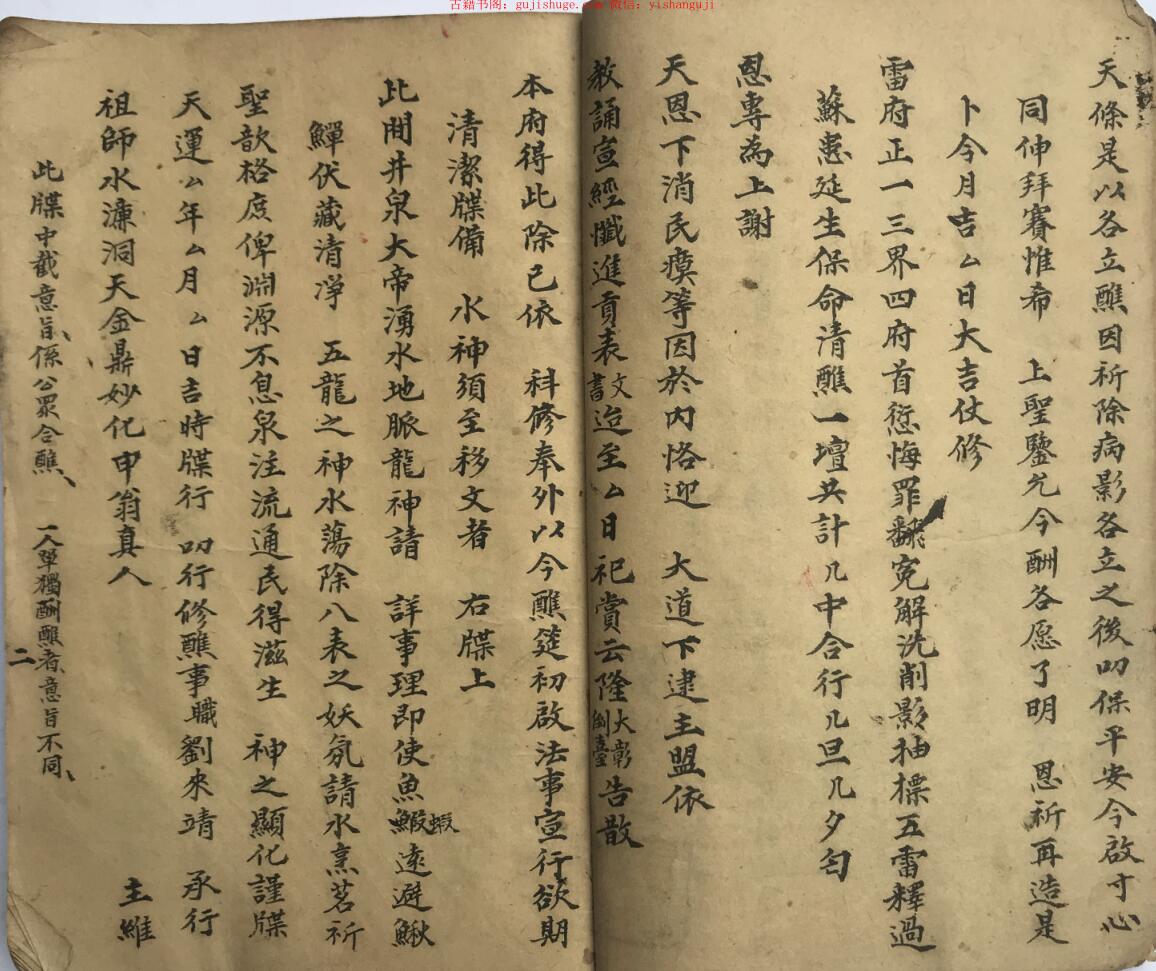 古籍书阁：gujishuge.com 微信：yishanguji
天條是以各立醮因祈除病影各立之後叩保平安今啟寸心
同伸拜賽惟希　上聖鑒允今酬各愿了明　恩祈再造是
卜今月吉厶日大吉仗修
雷府正一三界四府首愆悔罪翻冤解洗削影抽標五雷釋過
蘇患延生保命清醮一壇共計几中合行几旦几夕匄
恩專為上謝
天恩下消民瘼等因於内恪迎　大道下逮主盟依
教誦宣經懺進貢表文書迨至厶日祀賞云隆大彰倒臺告散
本府得此除已依　科修奉外以今醮筵初啟法事宣行欲期
清潔牒備　水神須至移文者　右牒上
此間井泉大帝湧水地脈龍神請　詳事理即使魚鰕蝦遠避鰍
鱓伏藏清凈　五龍之神水蕩除八表之妖氛請水烹茗祈
聖歆格庶俾淵源不息泉注流通民得滋生　神之顯化謹牒
天運厶年厶月厶日吉時牒行　叩行修醮事職劉來靖　承行
祖師水濂洞天金鼎妙化申翁真人　主維
此牒中截意旨係公眾合醮、一人單獨酬醮者意旨不同、
二